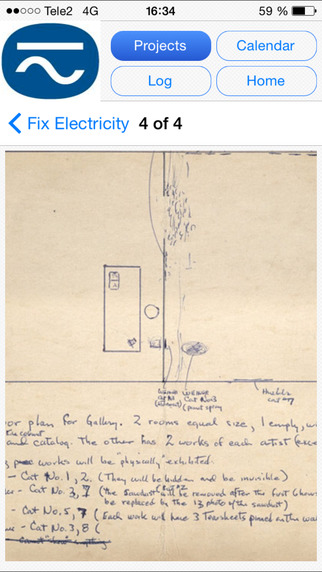 Tele2 4G 16:34 59 %
Projects Calendar
Log Home
Fix Electricity 4 of 4
Cat No3
or plan for Gallery. 2 rooms equal size, 1 empty, w
and catalog. The other has 2 works of each artist (exce
works will be "physically" exhibited.
- Cat No. 1, 2. (They will be hidden and be invisible)
- Cat No. 3, 7 (the sawdust will be removed after the first 6 hours
be replaced by the 13 photo of the sawdust)
- Cat No. 5, 7 (Each work will have 3 Tearsheets pinned on the wa
- Cat No. 3, 8 (